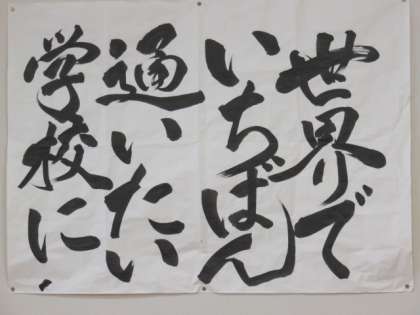 世界で
いちばん
通いたい
学校に、